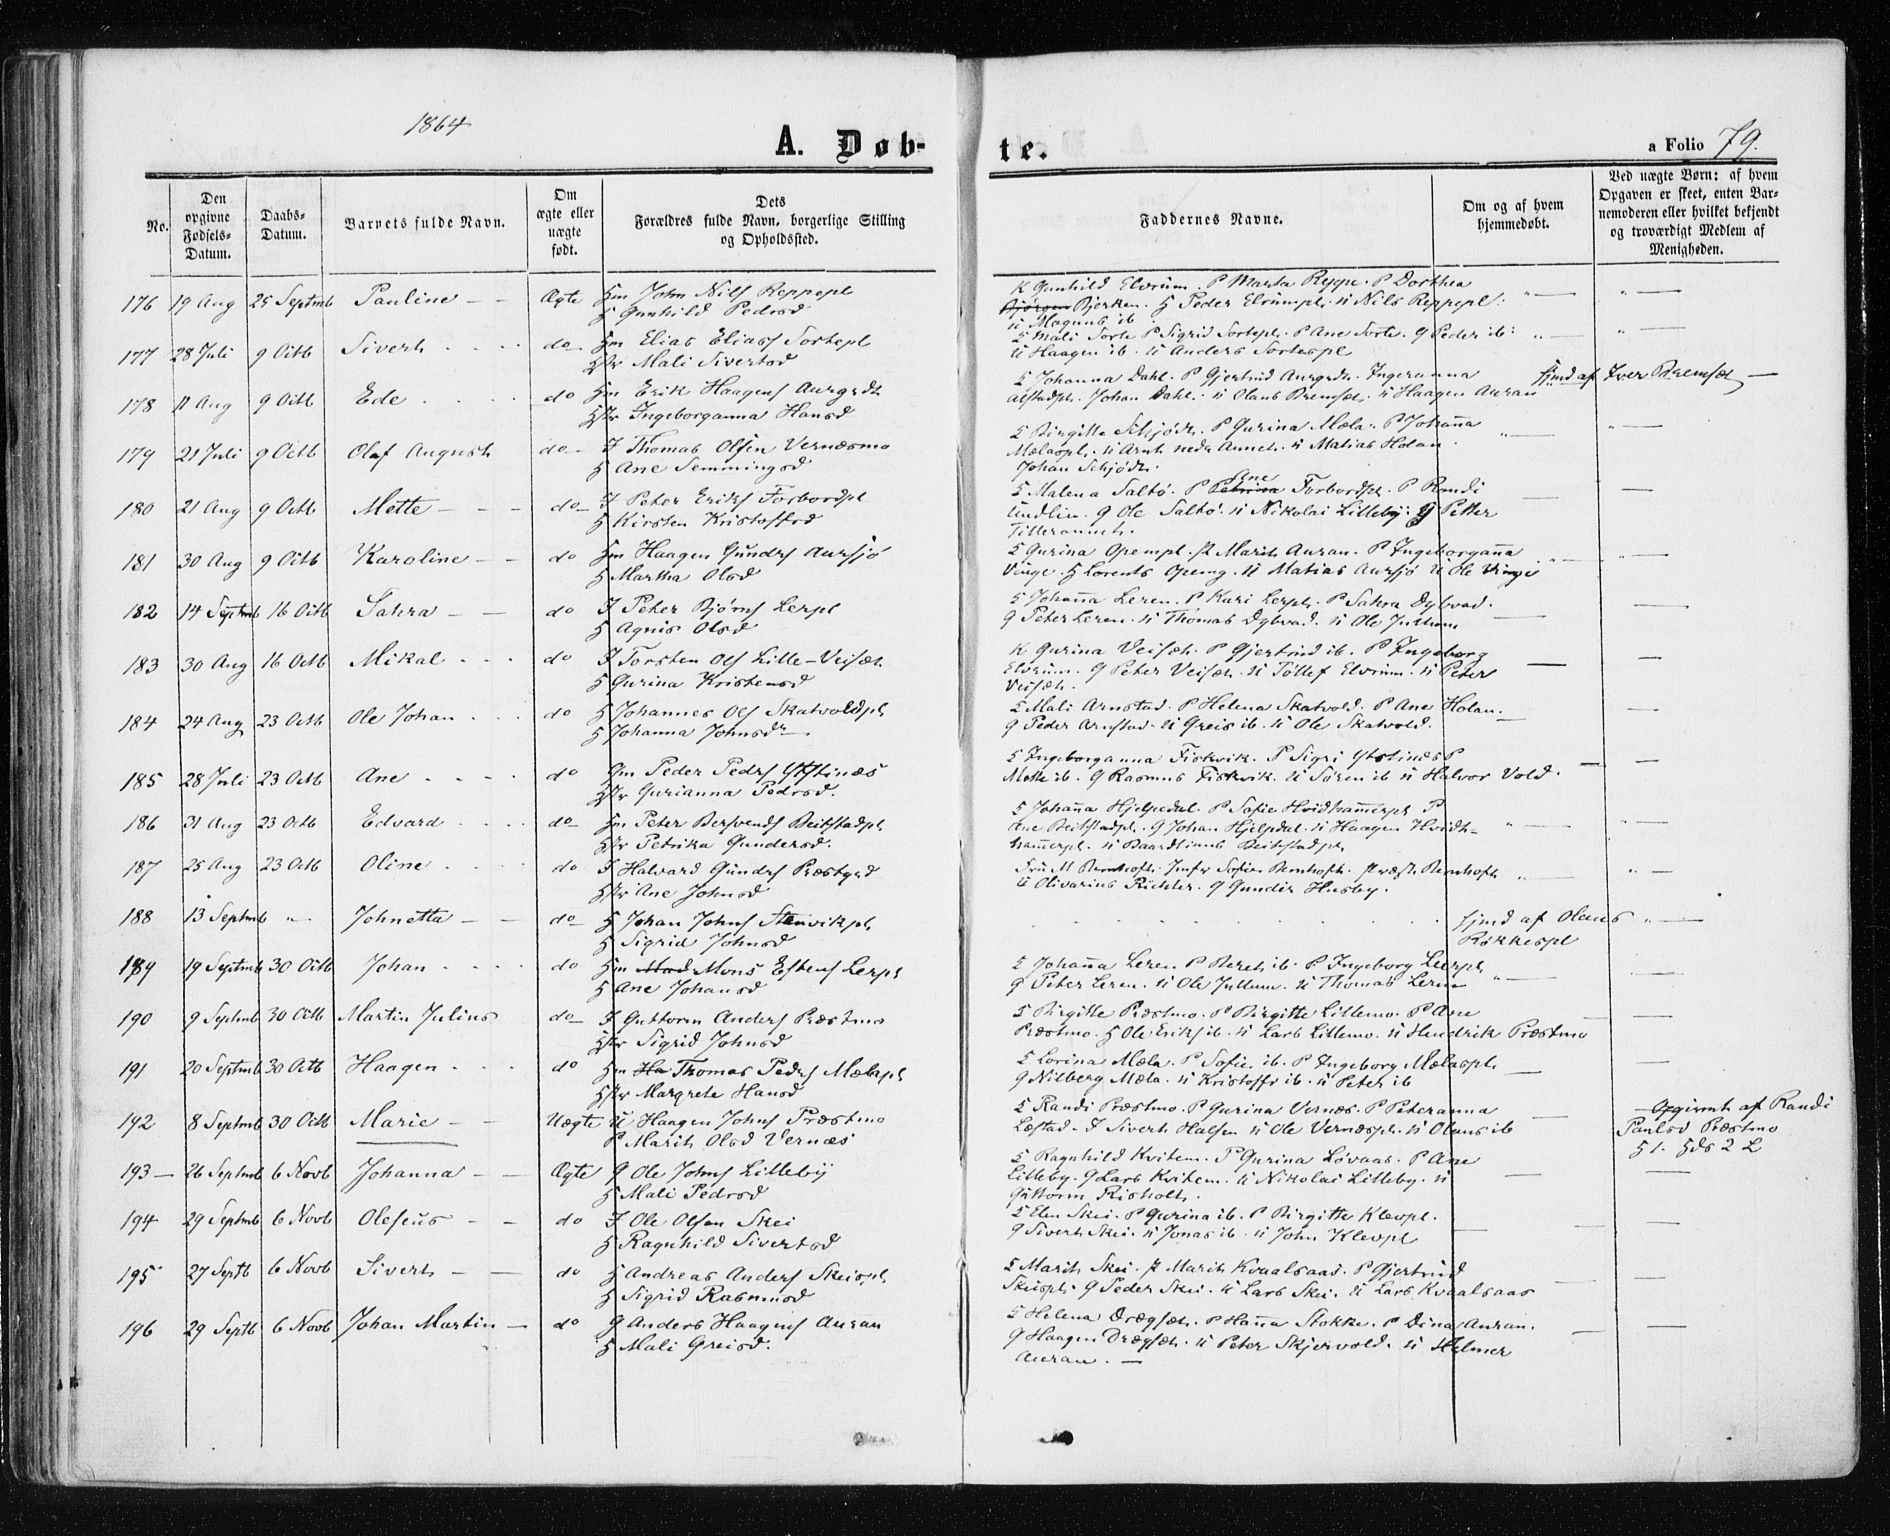 1864
A. Døb-
te.
a Folio 79.
No.
Den opgivne Fødsels-Datum.
Daabs-Datum.
Barnets fulde Navn.
Om ægte eller uægte født.
Dets Forældres fulde Navn, borgerlige Stilling og Opholdssted.
Faddernes Navne.
Om og af hvem hjemmedøbt.
Ved uægte Børn: af hvem Opgaven er skeet, enten Barnemoderen eller hvilket bekjendt og troværdigt Medlem af Menigheden.
176 19 Aug 25 Septmb Pauline Ægte Hm John Nils Reppepl
H Gunhild Pedrsd
K Gunhild Elvrum. P Marta Reppe. P Dorthea
Bjerken. H Peder Elvrumpl. U Nils Reppepl.
U Magnus ib
177 28 Juli 9 Octb Siverh do Hm Elias Eliass Sortepl
Hstr Mali Sivertsd
K Mali Sorte P Sigrid Sortepl. P Ane Sorte. G Peder ib:
U Haagen ib. U Anders Sortespl
178 11 Aug 9 Octb Ede do Hm Erik Haagens Aurgrdt
Hstr Ingeborganna Hansd
K Johanna Dahl. P Gjertrud Aurgrdt. Ingeranna
Alstadpl. Johan Dahl. U Olaus Bremset. U Haagen Auran
Hjmd af Iver Bremset
179 21 Juli 9 Octb Olaf August do I Thomas Olsen Vernæsmo
H Ane Semmingsd
K Birgitte Schjødt. P Gurina Mæla. P Johanna
Mælaspl. U Arnt nedr Annet. U Matias Holan.
Johan Schjødt.
180 21 Aug 9 Octb Mette do I Peter Eriks Forbordpl
H Kirsten Kristoffrd
K Malena Saltø. P Ane Forbordpl. P Randi
Undlin. G Ole Saltø. U Nikolai Lilleby. G Petter
Tilleraunet.
181 30 Aug 9 Octb Karoline do Hm Haagen Gunders Aursjø
H Martha Olsd
K Gurina Opempl. P Marit Auran. P Ingeborganna
Vinge. H Lorents Opemg. U Matias Aursjø U Ole Vinge
182 14 Septmb 16 Octb Sahra do I Peter Bjørns Lerpl
H Agnis Olsd
K Johanna Leren. P Kari Lerpl. P Sahra Dybvad.
G Peter Leren. U Thomas Dybvad. U Ole Jullum
183 30 Aug 16 Octb Mikal do I Torsten Ols Lille-Veiset
H Gurina Kristensd
K Gurina Veiset. P Gjertrud ib. P Ingeborg
Elvrum. G Peter Veiset. U Tollef Elvrum. U Peter
Veiset.
184 24 Aug 23 Octb Ole Johan do H Johannes Ols Skatvoldpl
H Johanna Johnsdr
K Mali Arnstad. P Helena Skatvold. P Ane Holan.
G Peder Arnstad. U Greis ib. U Ole Skatvold.
185 28 Juli 23 Octb Ane do Gm Peder Pedrs Ystinæs
Hstr Gurianna Pedrsd.
K Ingeborganna Fiskvik. P Sigri Ystinæs P
Mette ib. G Rasmus Fiskvik. U Søren ib U Halvor Vold.
186 31 Aug 23 Octb Edvard do Hm Peter Bersvends Beitstadpl
Hstr Petrika Gundersd.
K Johanna Hjelpedal. P Sofie Hvidhammerpl P
Ane Beitstadpl. G Johan Hjelpdal. U Haagen Hvidt-
hammerpl. U Baardlinus Beitstadpl
187 25 Aug 23 Octb Oline do I Halvard Gunders Præstgrd
Hstr Ane Johnsd
Fru M Bernhoft. Jmfr Sofie Bernhoft. Præst Bernhoft
U Olivarius Richter. G Gunder Husby.
188 13 Septmb " Johnetta do H Johan Johns Stenvikpl
H Sigrid Johnsd
Hjmd af Olaus
Røkkespl
189 19 Septmb 30 Octb Johan do Hm Mons Estens Lerpl
H Ane Johansd
K Johanna Leren. P Beret ib. P Ingeborg Lerpl
G Peter Leren. U Ole Jullum. U Thomas Leren
190 9 Septmb 30 Octb Martin Julius do I Guttorm Anders Præstmo
Hstr Sigrid Johnsd
K Birgitte Præstmo. P Birgitte Lillemo. P Ane
Præstmo. H Ole Eriks ib. U Lars Lillemo. U Hendrik Præstmo
191 20 Septmb 30 Octb Haagen do Hm Thomas Pedrs Mælapl
Hstr Margrete Hansd
K Lorina Mæla. P Sofie ib. P Ingeborg Mælaspl.
G Nilberg Mæla. U Kristoffr ib. U Peter ib
192 8 Septmb 30 Octb Marie Uægte U Haagen Johns Præstmo
P Marit Olsd Vernæs
K Randi Præstmo. P Gurina Vernæs. P Peteranna
Læstad. I Sivert Halsen U Ole Vernæspl. U Olaus ib
Opgivent af Randi
Paulsd Præstmo
193 26 Septmb 6 Novb Johanna Ægte G Ole Johns Lilleby
H Mali Pedrsd
K Ragnhild Kvitem. P Gurina Løvaas. P Ane
Lilleby. G Lars Kvitem. U Nikolai Lilleby. U
Guttorm Risholt.
194 29 Septmb 6 Novb Oleseus do I Ole Olsen Skei
H Ragnhild Sivertsd
K Elen Skei. P Gurina ib. P Birgitte Klevpl.
G Siverh Skei. U Jonas ib. U John Klevpl
195 27 Septb 6 Novb Siverh do H Andreas Anders Skeispl
H Sigrid Rasmusd
K Marit Skei. P Marit Kvaalsaas. P Gjertrud
Skeispl. G Peder Skei. U Lars Skei. U Lars Kvaalsaas
196 29 Septb 6 Novb Johan Martin do G Anders Haagens Auran
H Mali Greisd.
K Helena Drægset. P Hanna Stokke. P Dina Auran.
G Haagen Drægset. U Peter Skjervold. U Helmer
Auran.